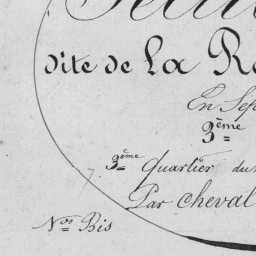 dite de La R
En Sep
3ème
3ème Quartier du
Par cheval
Nos Bis